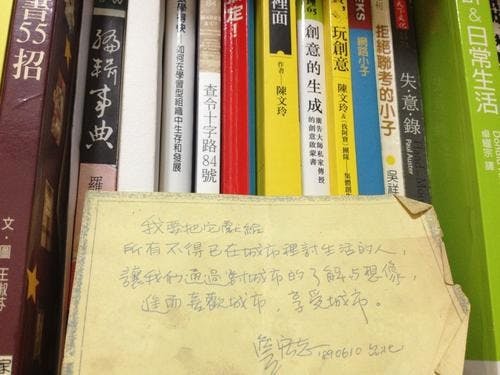 書55招
文·圖 王淑芬
編輯事典
羅
學得快
如何在學習型組織中生存和發展
查令十字路84號
定!
裡面
作者 陳文玲
創意的生成
廣告大師私家傳授的創意啟蒙書
玩創意
陳文玲&
網路小子
拒絕聯考的小子
吳祥
失意·錄
Paul Auster
計&日常生活
我要把它獻給
所有不得已在城市裡討生活的人，
讓我們通過對城市的了解与想像，
進而喜歡城市，享受城市。
詹宏志 890610 台北